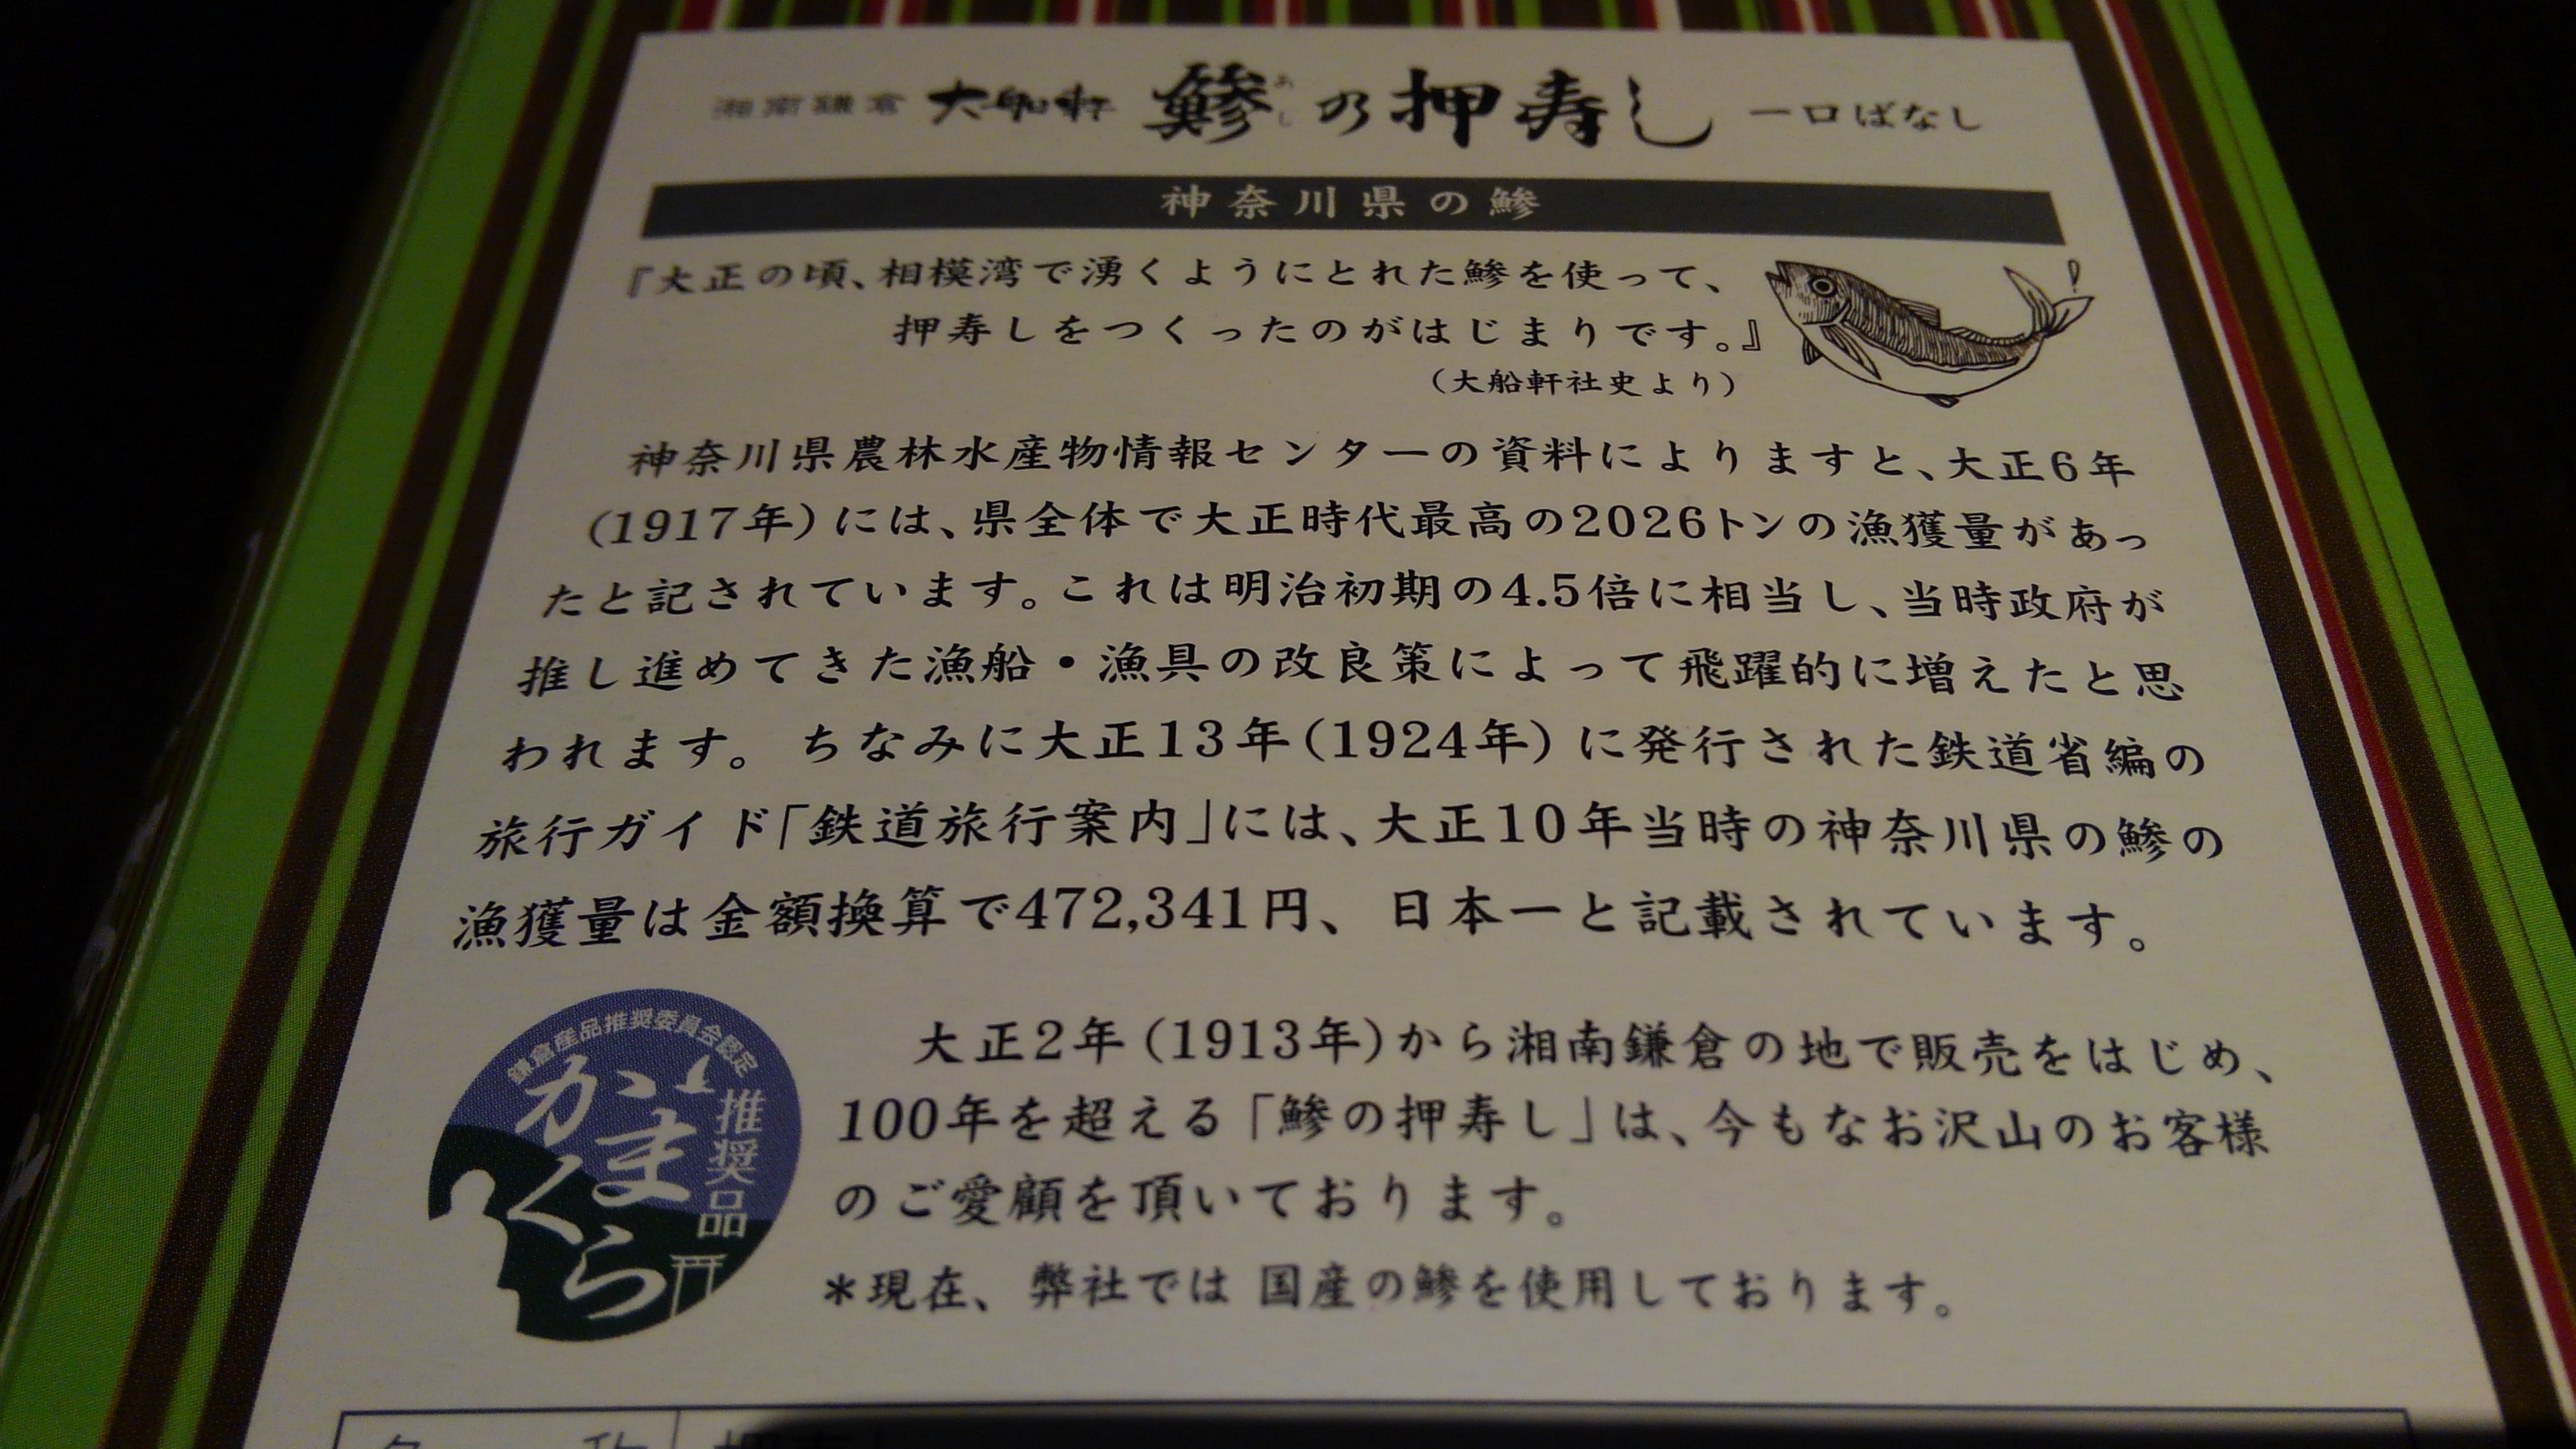 湘南鎌倉 大船軒 鯵の押寿し 一口ばなし
あじ
神奈川県の鯵
『大正の頃、相模湾で湧くようにとれた鯵を使って、
押寿しをつくったのがはじまりです。』
(大船軒社史より)
神奈川県農林水産物情報センターの資料によりますと、大正6年
(1917年)には、県全体で大正時代最高の2026トンの漁獲量があっ
たと記されています。これは明治初期の4.5倍に相当し、当時政府が
推し進めてきた漁船・漁具の改良策によって飛躍的に増えたと思
われます。ちなみに大正13年(1924年)に発行された鉄道省編の
旅行ガイド「鉄道旅行案内」には、大正10年当時の神奈川県の鯵の
漁獲量は金額換算で472,341円、日本一と記載されています。
鎌倉産品推奨委員会認定
かまくら
推奨品
大正2年(1913年)から湘南鎌倉の地で販売をはじめ、
100年を超える「鯵の押寿し」は、今もなお沢山のお客様
のご愛顧を頂いております。
*現在、弊社では 国産の鯵を使用しております。